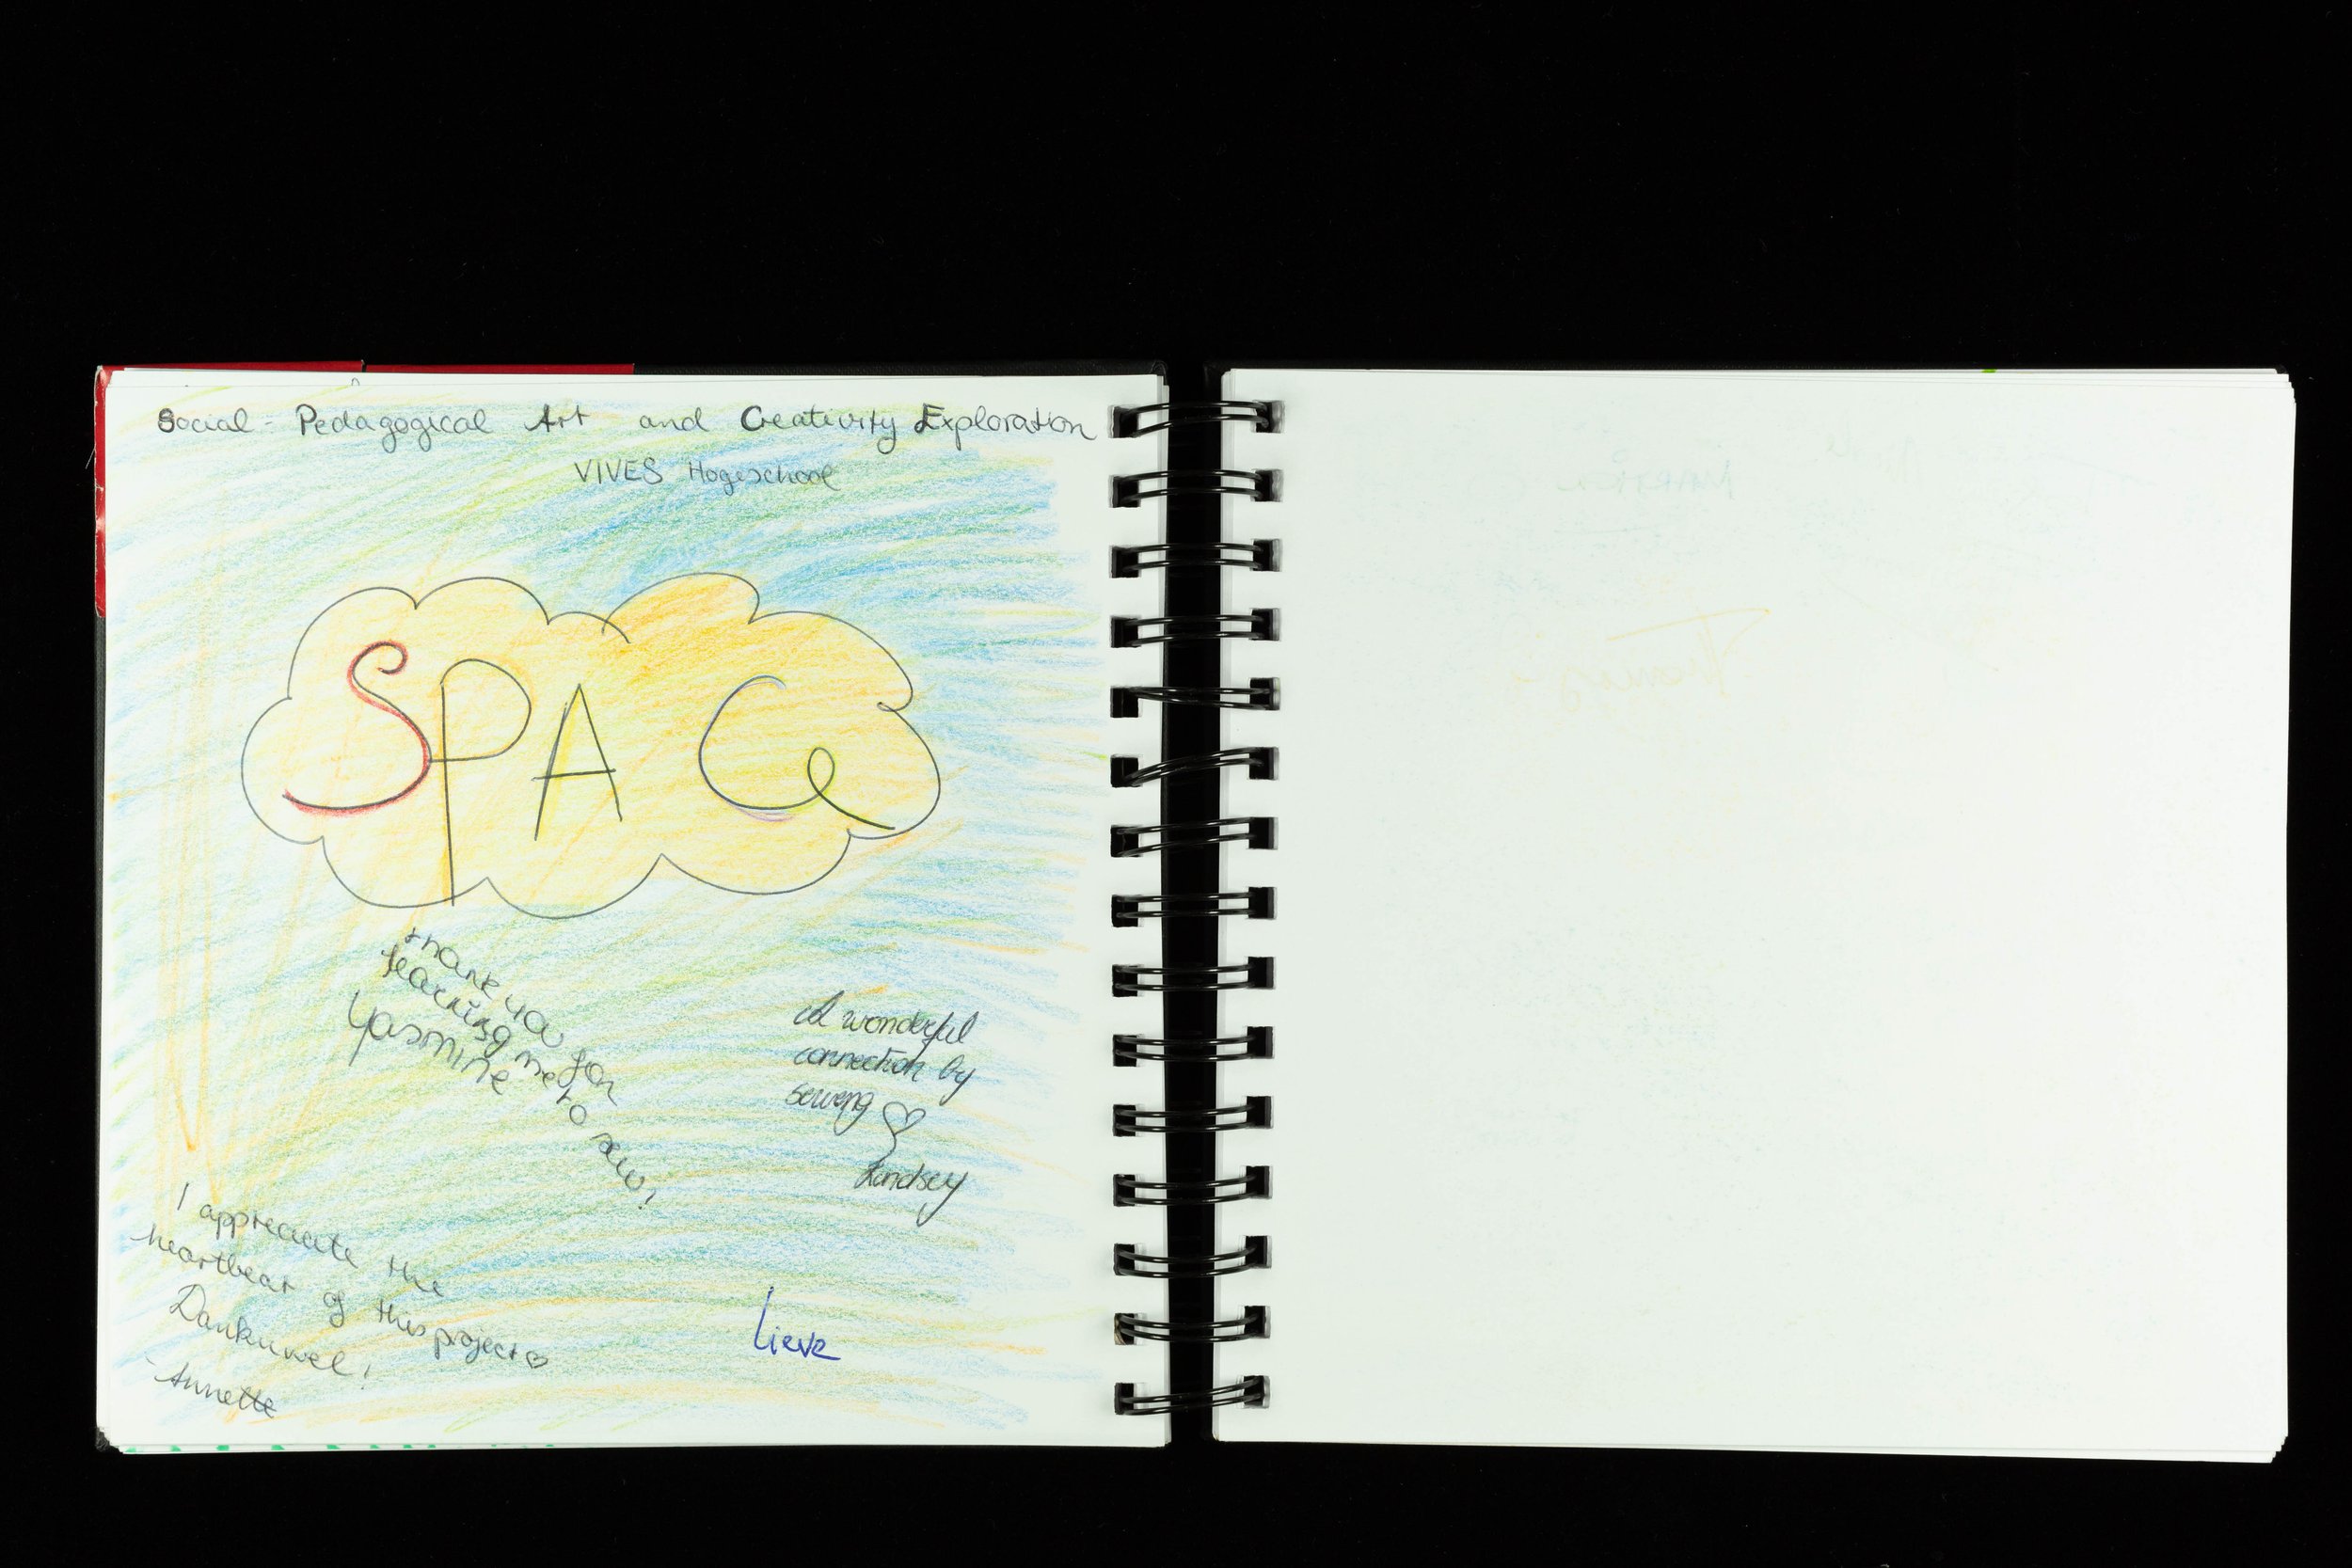 Social-Pedagogical Art and Creativity Exploration
VIVES Hogeschool
SPACe
thank you for
teaching me to sew!
Yasmine
A wonderful
connection by
sewing ♡
Lindsey
I appreciate the
heartbeat of this project ♡
Dankuwel!
- Annette
Lieve